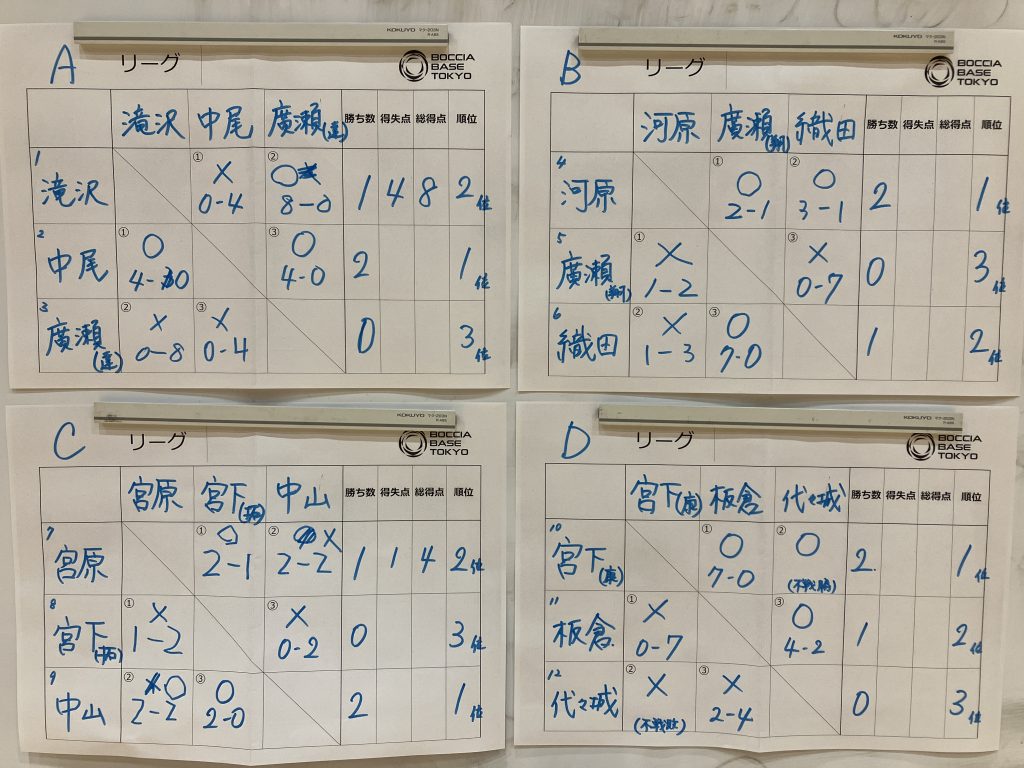 KOKUYO マク-203N
A リーグ BOCCIA BASE TOKYO
滝沢 中尾 廣瀬(達) 勝ち数 得失点 総得点 順位
1 滝沢 ① × 0-4 ② ○ 8-0 1 4 8 2位
2 中尾 ① ○ 4-0 ③ ○ 4-0 2 1位
3 廣瀬(達) ② × 0-8 ③ × 0-4 0 3位
KOKUYO マク-203N
B リーグ BOCCIA BASE TOKYO
河原 廣瀬 織田 勝ち数 得失点 総得点 順位
4 河原 ① ○ 2-1 ② ○ 3-1 2 1位
5 廣瀬 ① × 1-2 ③ × 0-7 0 3位
6 織田 ② × 1-3 ③ ○ 7-0 1 2位
KOKUYO マク-203N
C リーグ BOCCIA BASE TOKYO
宮原 宮下(拓) 中山 勝ち数 得失点 総得点 順位
7 宮原 ① ○ 2-1 ② × 2-2 1 1 4 2位
8 宮下(拓) ① × 1-2 ③ × 0-2 0 3位
9 中山 ② ○ 2-2 ③ ○ 2-0 2 1位
KOKUYO マク-203N
D リーグ BOCCIA BASE TOKYO
宮下(康) 板倉 代々城 勝ち数 得失点 総得点 順位
10 宮下(康) ① ○ 7-0 ② ○ (不戦勝) 2 1位
11 板倉 ① × 0-7 ③ ○ 4-2 1 2位
12 代々城 ② × (不戦敗) ③ × 2-4 0 3位